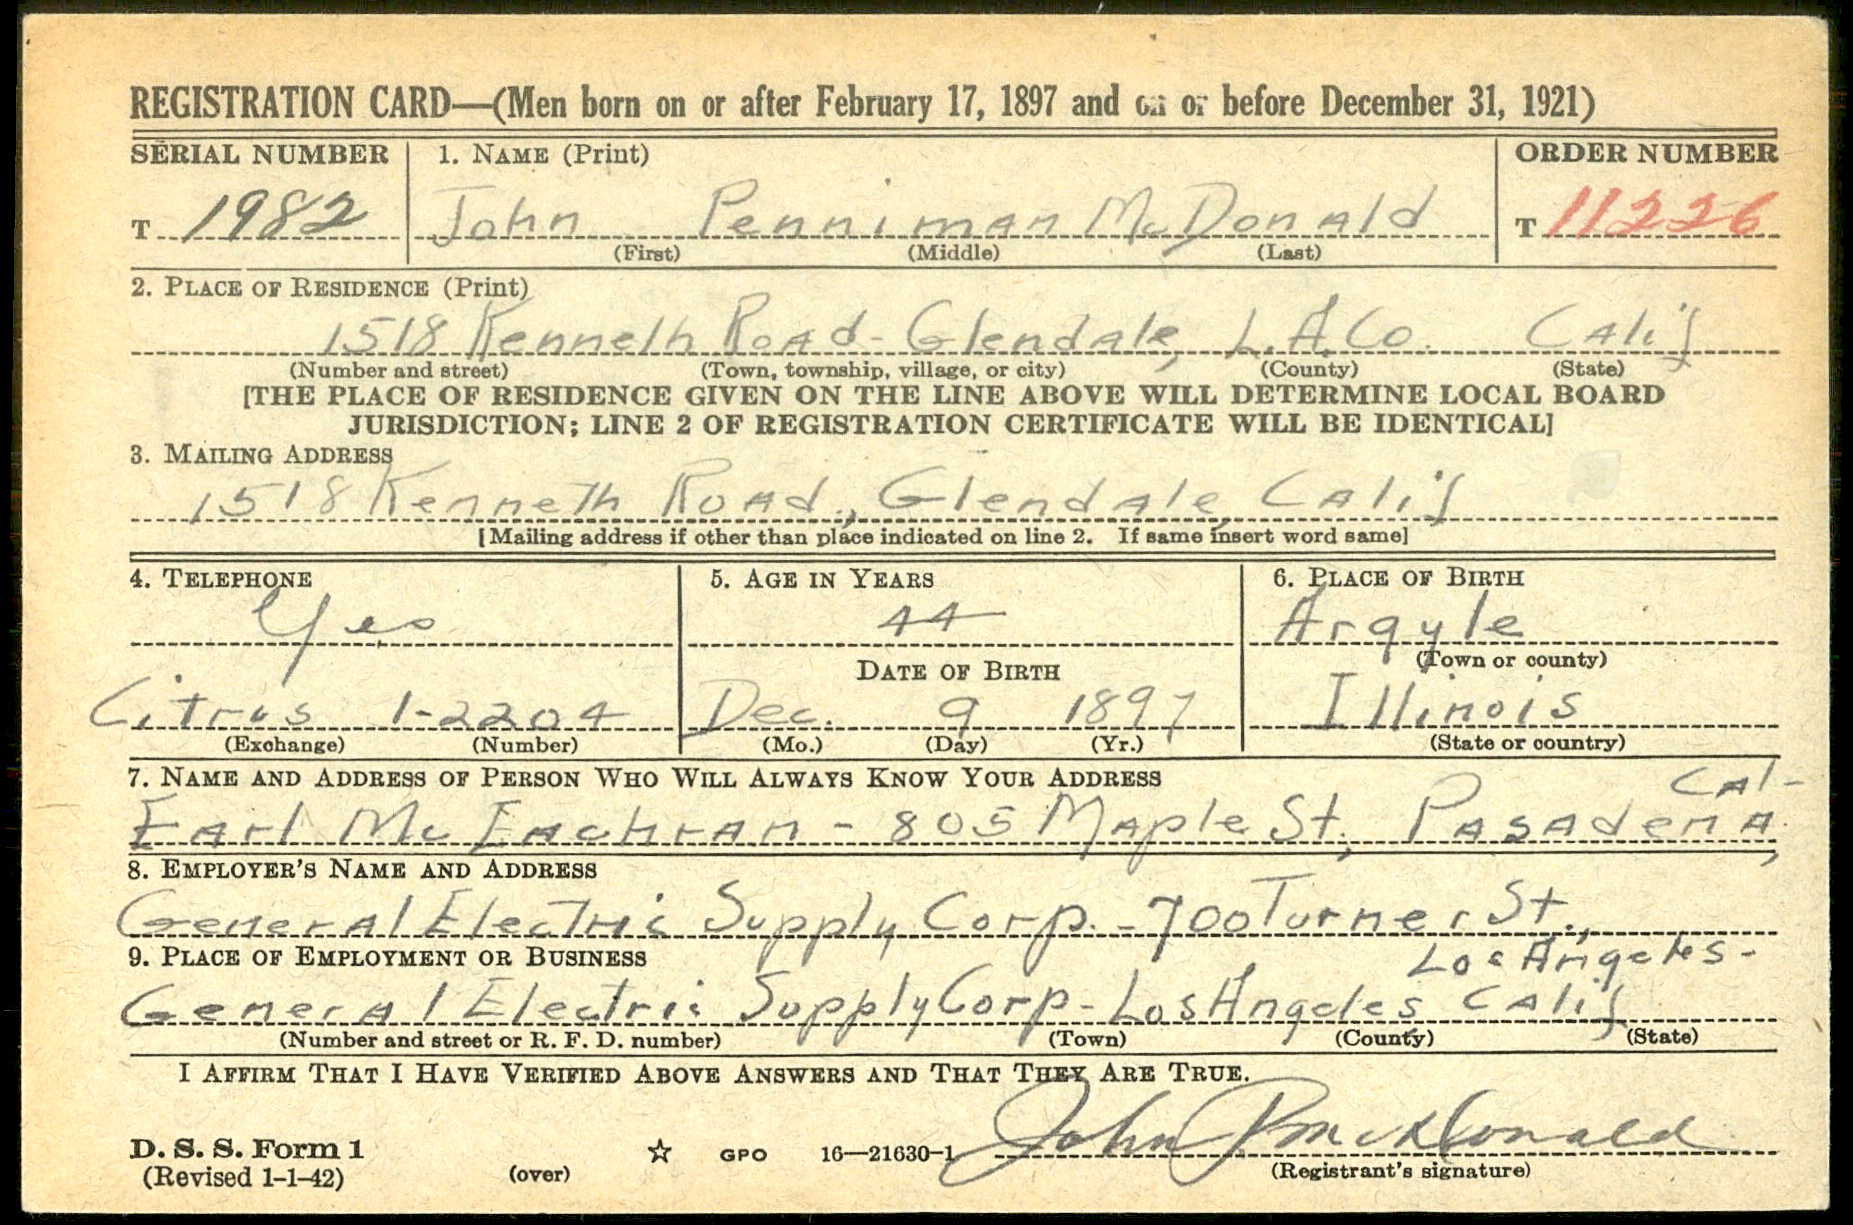 REGISTRATION CARD—(Men born on or after February 17, 1897 and on or before December 31, 1921)
SERIAL NUMBER 1. NAME (Print) ORDER NUMBER
T 1982 John Penniman McDonald T 11226
(First) (Middle) (Last)
2. PLACE OF RESIDENCE (Print)
1518 Kenneth Road - Glendale, L.A. Co. Calif
(Number and street) (Town, township, village, or city) (County) (State)
[THE PLACE OF RESIDENCE GIVEN ON THE LINE ABOVE WILL DETERMINE LOCAL BOARD
JURISDICTION; LINE 2 OF REGISTRATION CERTIFICATE WILL BE IDENTICAL]
3. MAILING ADDRESS
1518 Kenneth Road, Glendale, Calif
[Mailing address if other than place indicated on line 2. If same insert word same]
4. TELEPHONE 5. AGE IN YEARS 6. PLACE OF BIRTH
Yes 44 Argyle
DATE OF BIRTH (Town or county)
Citrus 1-2204 Dec. 9 1897 Illinois
(Exchange) (Number) (Mo.) (Day) (Yr.) (State or country)
7. NAME AND ADDRESS OF PERSON WHO WILL ALWAYS KNOW YOUR ADDRESS
Cal-
Earl McEachran - 805 Maple St., Pasadena,
8. EMPLOYER'S NAME AND ADDRESS
General Electric Supply Corp. - 700 Turner St.,
9. PLACE OF EMPLOYMENT OR BUSINESS Los Angeles -
General Electric Supply Corp - Los Angeles Calif
(Number and street or R. F. D. number) (Town) (County) (State)
I AFFIRM THAT I HAVE VERIFIED ABOVE ANSWERS AND THAT THEY ARE TRUE.
D. S. S. Form 1 GPO 16—21630-1 John P. McDonald
(Revised 1-1-42) (over) (Registrant's signature)